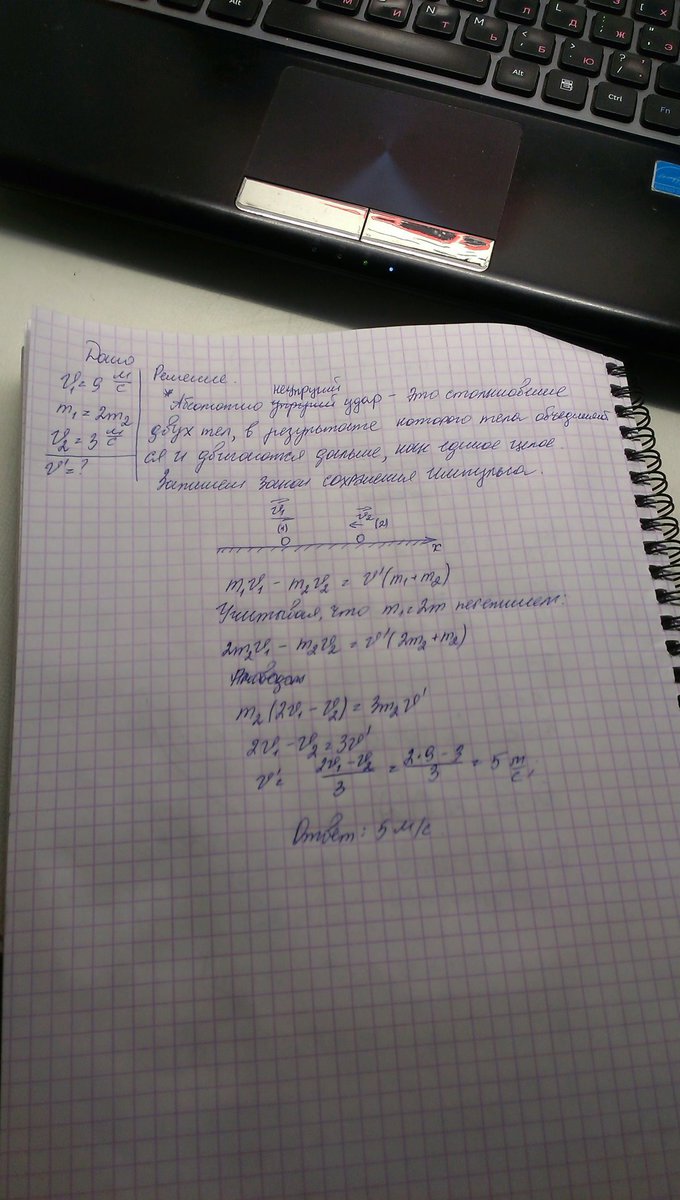 Alt
И
N Т
М Ь
< , Б
> Ю
? /
Л
Д
Ж
Э
З
Х
Alt
Ctrl
Fn
Дано
v₁ = 9 м/с
m₁ = 2m₂
v₂ = 3 м/с
v' = ?
Решение.
неупругий
* Абсолютно упругий удар – это столкновение
двух тел, в результате которого тела объединяют
ся и двигаются дальше, как единое целое.
Запишем закон сохранения импульса.
v₁ v₂
(1) (2)
x
m₁v₁ − m₂v₂ = v'(m₁+m₂)
Учитывая, что m₁=2m перепишем:
2m₂v₁ − m₂v₂ = v'(2m₂+m₂)
m₂(2v₁ − v₂) = 3m₂v'
2v₁ − v₂ = 3v'
v' = (2v₁ − v₂)/3 = (2·9 − 3)/3 = 5 м/с,
Ответ: 5 м/с